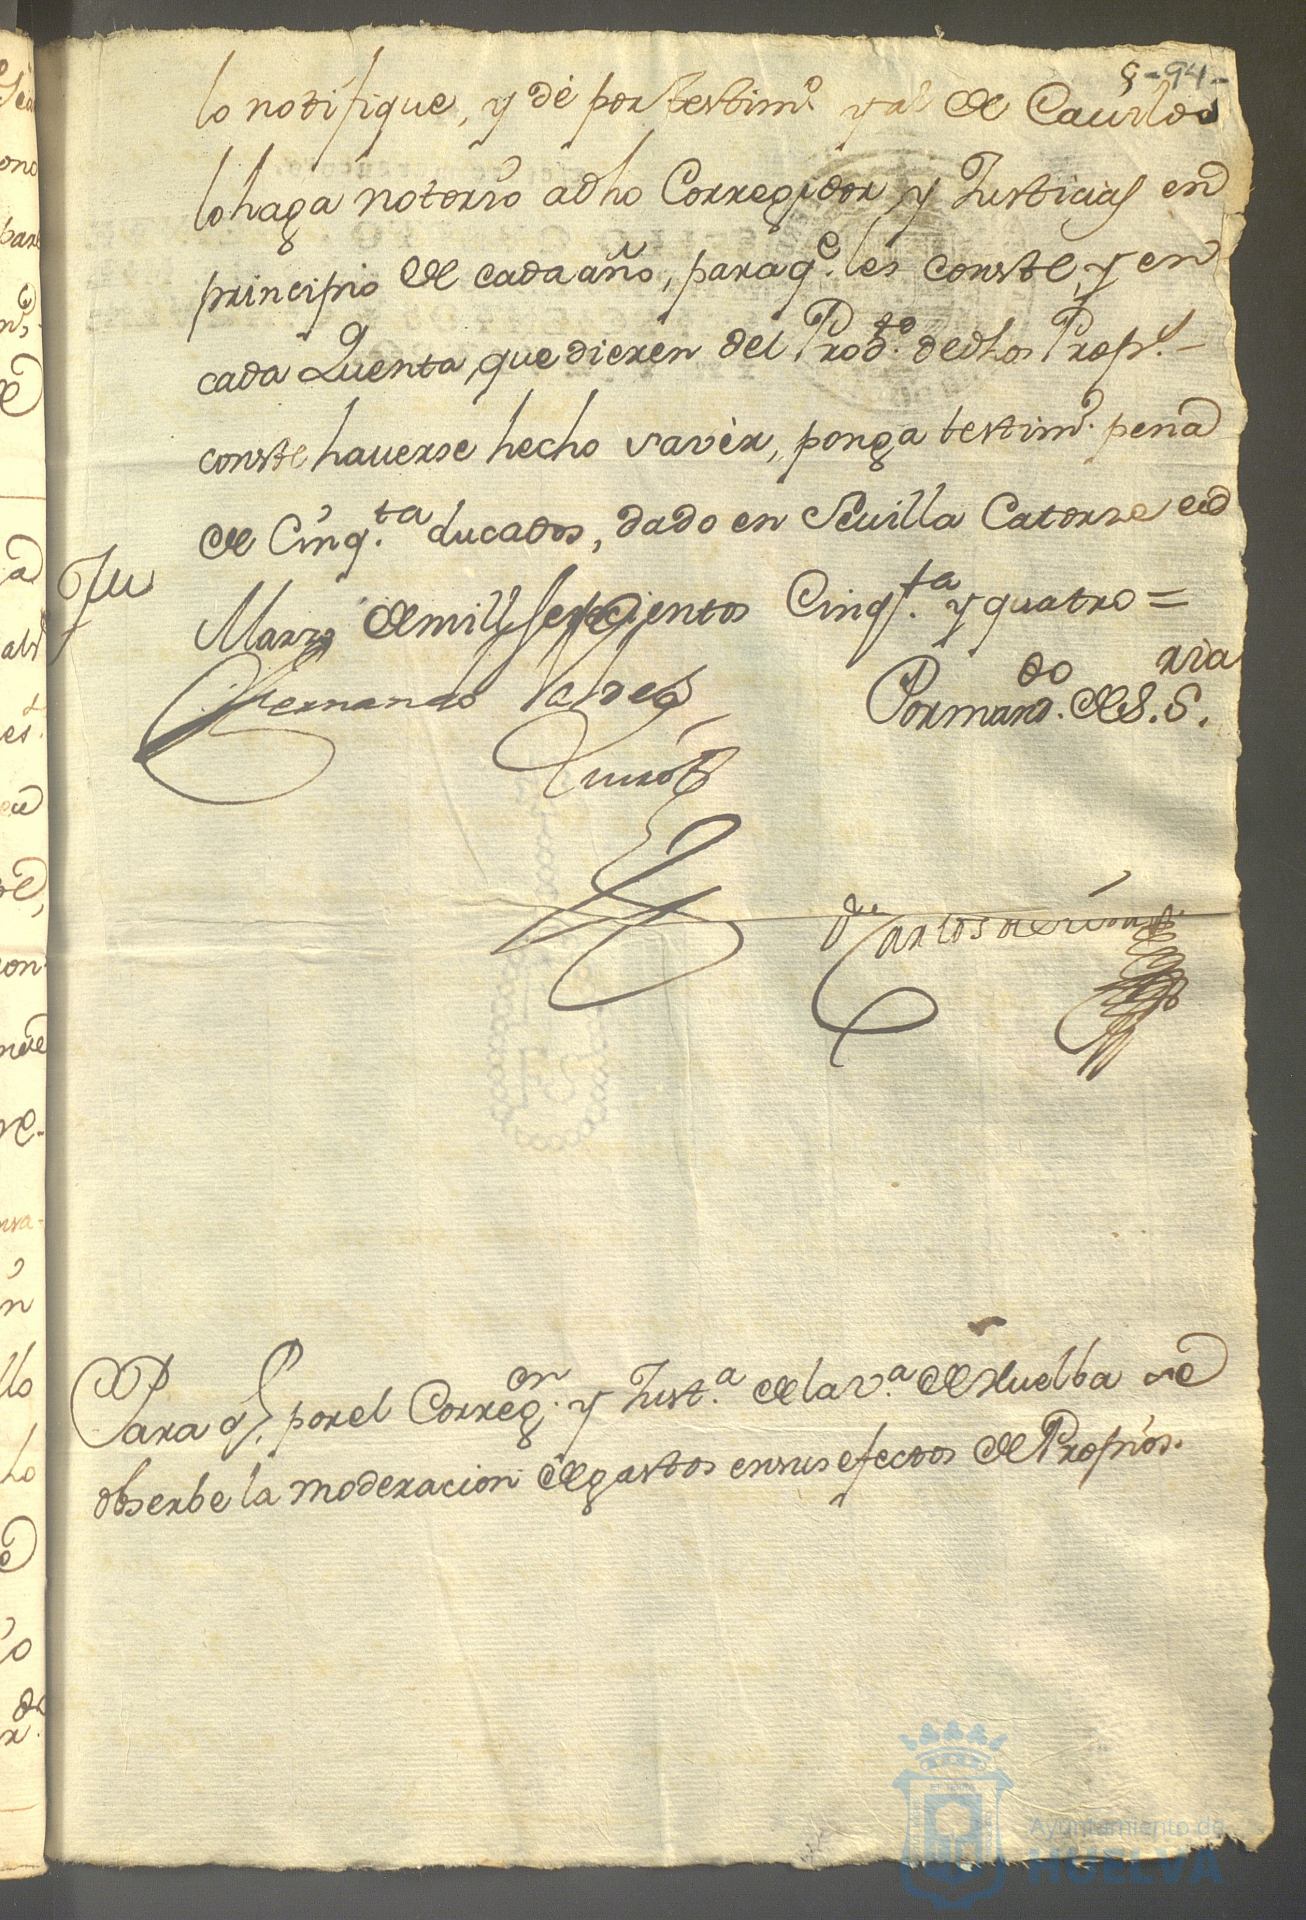 8-94-
lo notifique, y dé por testimo. y al de Cavildo
lo haga notorio a dho Corregidor y Justicias en
principio de cada año, para qe. les conste, y en
cada Quenta, que dieren del Prodto. de dhos Props.
conste haverse hecho saver, ponga testimo. pena
de Cinqta. ducados, dado en Sevilla Catorze de
Marzo de mill Setecientos Cinqta. y quatro =
Fernando Valdes
Quirós
Por mando. de S. Sria.
Dn Carlos de
Para q. por el Corregon. y Justa. de la va. de Huelba se
obserbe la moderacion de gastos en sus efectos de Propios.
Ayuntamiento de
HUELVA